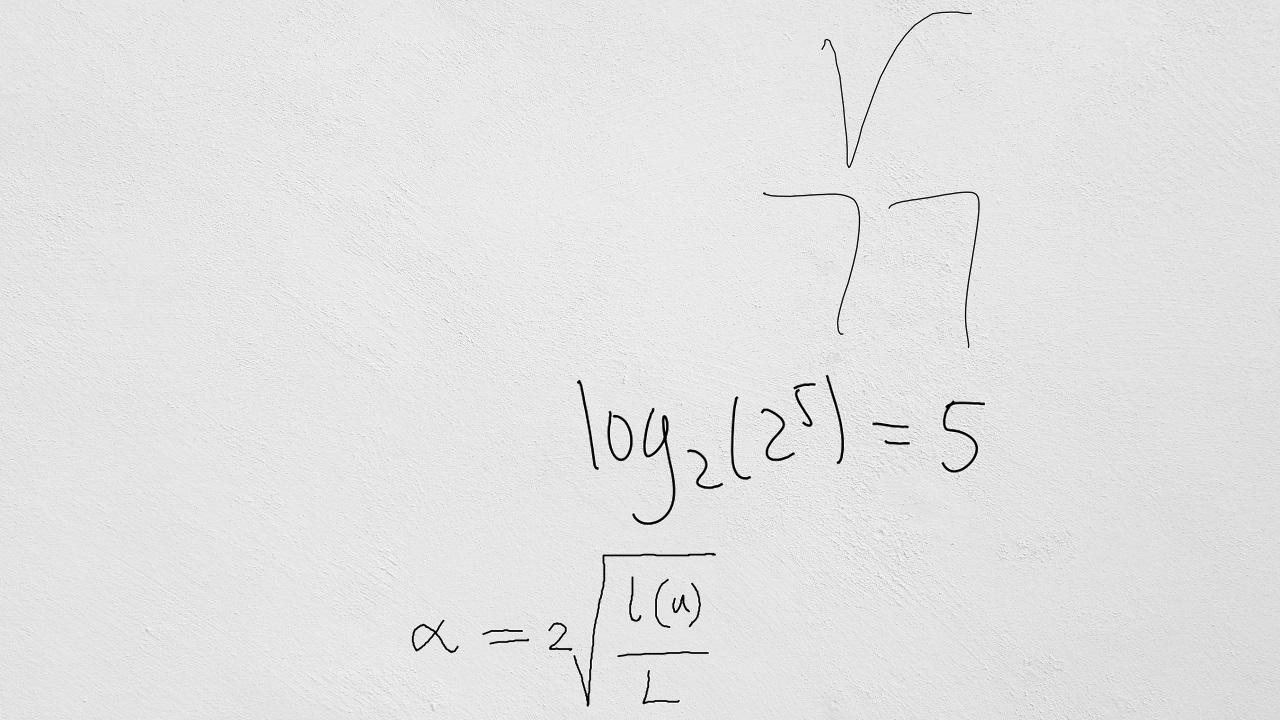 √
77
log₂(2⁵) = 5
α = 2√(l(u)/L)